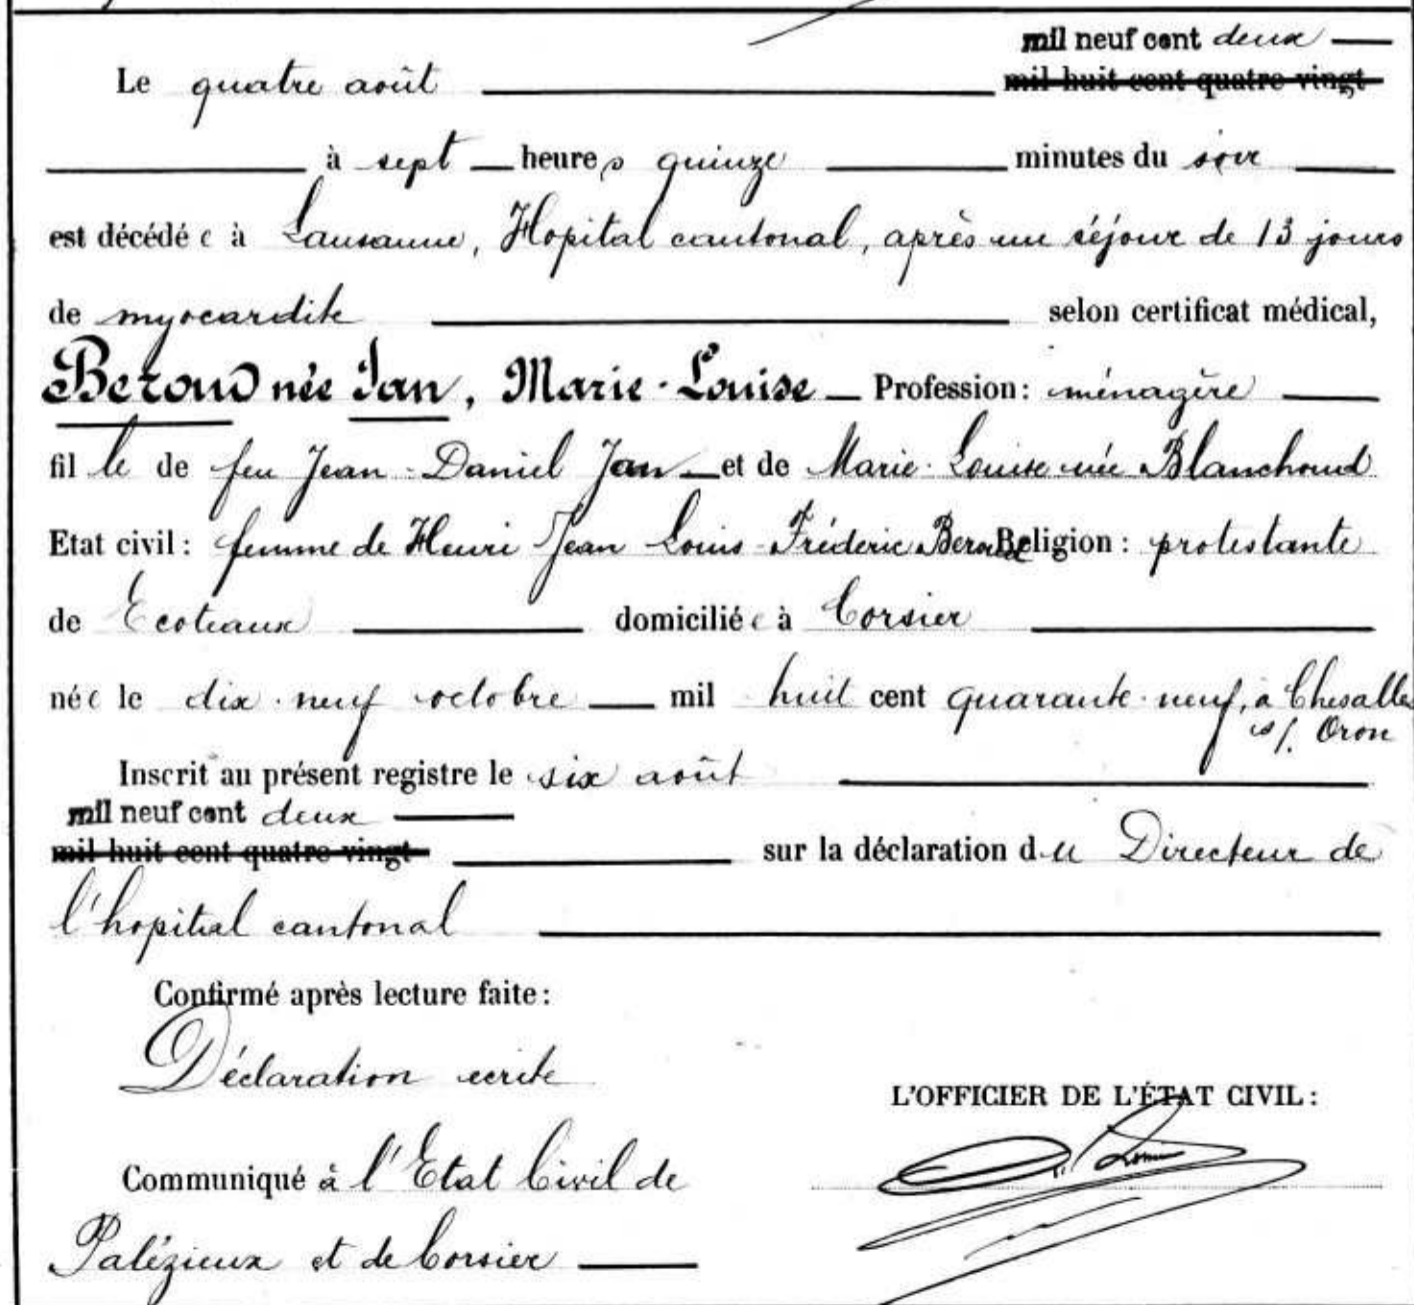 mil neuf cent deux
Le quatre août mil huit cent quatre vingt
à sept heures quinze minutes du soir
est décédée à Lausanne, Hopital cantonal, après un séjour de 13 jours
de myocardite selon certificat médical,
Beroud née Jan, Marie-Louise Profession: ménagère
fille de feu Jean-Daniel Jan et de Marie-Louise née Blanchoud
Etat civil: femme de Henri Jean Louis-Fréderic Beroud Religion: protestante
de Ecoteaux domiciliée à Corsier
née le dix-neuf octobre mil huit cent quarante-neuf, à Chesalles
s/. Oron
Inscrit au présent registre le six août
mil neuf cent deux
mil huit cent quatre vingt sur la déclaration du Directeur de
l'hopital cantonal
Confirmé après lecture faite:
Déclaration ecrite
L'OFFICIER DE L'ÉTAT CIVIL:
Communiqué à l'Etat Civil de
Palézieux et de Corsier